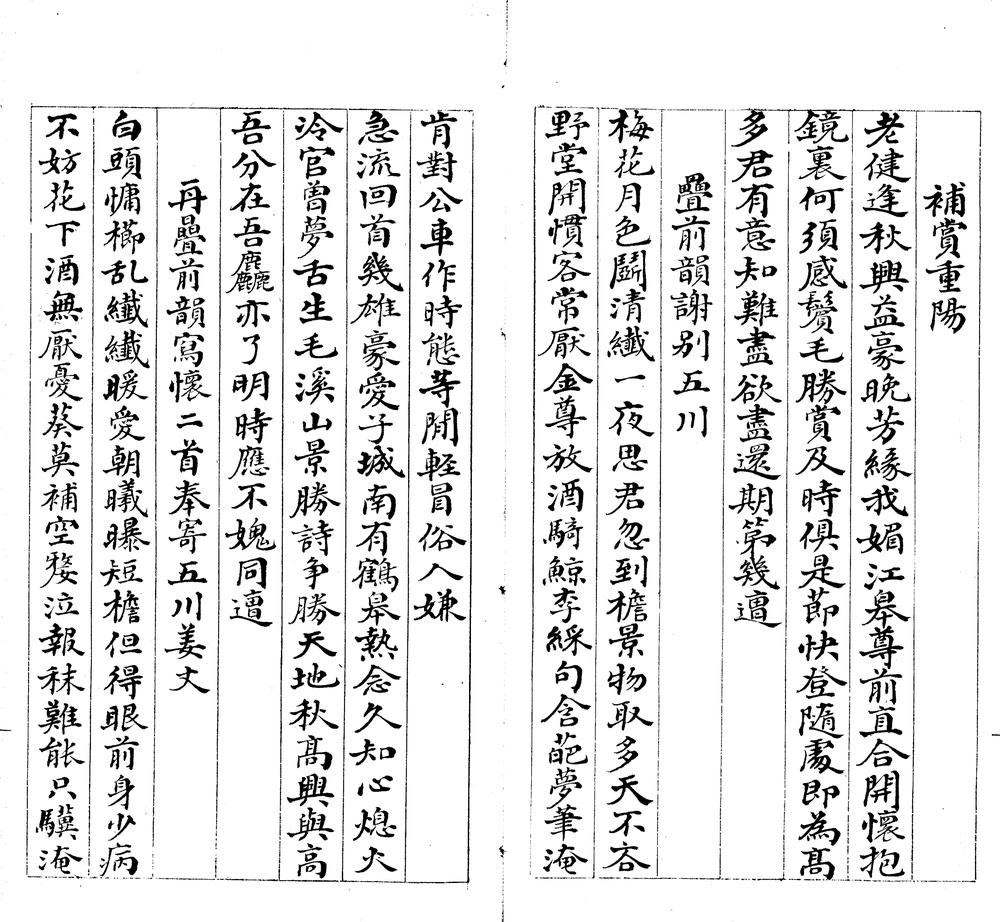 補賞重陽
老健逢秋興益豪晚芳緣我媚江皋尊前直合開懷抱
鏡裏何須感鬢毛勝賞及時俱是節快登隨處即為髙
多君有意知難盡欲盡還期第幾邅
疊前韻謝别五川
梅花月色鬬清纖一夜思君忽到檐景物取多天不吝
野堂開慣客常厭金尊放酒騎鯨李綵句含葩夢筆淹
肯對公車作時態等閒輕冒俗人嫌
急流回首幾雄豪愛子城南有鶴皋熱念久知心熄火
冷官曽夢舌生毛溪山景勝詩争勝天地秋髙興與高
吾分在吾麤亦了明時應不媿同邅
再疊前韻寫懷二首奉寄五川姜丈
白頭慵櫛乱纖纖暖愛朝曦曝短檐但得眼前身少病
不妨花下酒無厭憂葵莫補空嫠泣報秣難能只驥淹